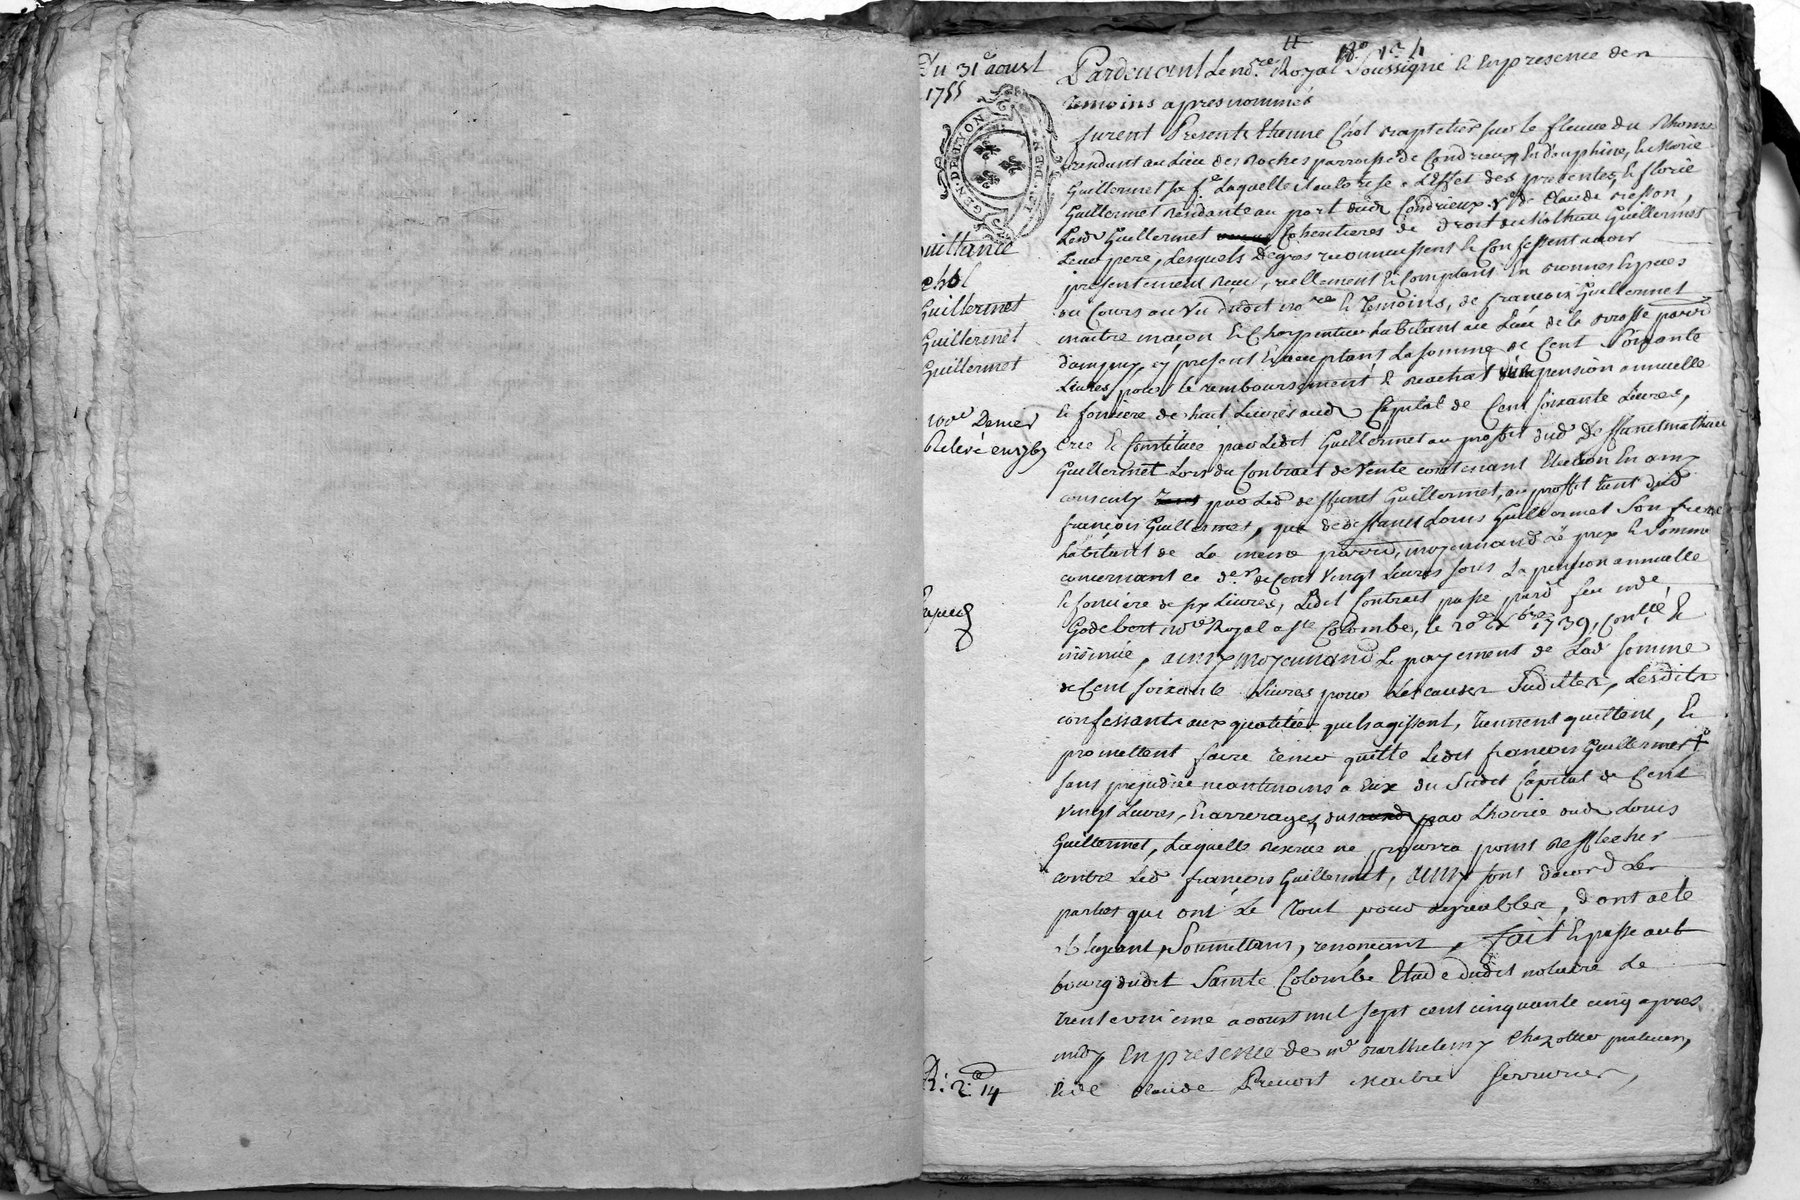 Du 31e aoust
1755
GEN. DE LYON
quittance
chol
Guillermet
Guillermet
Guillermet
Relevé en 1767
R: 2e 14
Pardevant le nore Royal soussigné & en presence des
temoins apres nommés
furent presents Etienne Chol sur le fleuve du Rhone
residant au lieu des Roches parroisse de Condrieux en dauphiné, & Marie
Guillermet sa fe laquelle il authorise a l'effet des presentes, & florie
Guillermet residante au port dud Condrieux ve de Claude
Lesd Guillermet coheritieres de droit de Mathieu Guillermet
leur pere, lesquels de gres reconnaissent & confessent avoir
presentement receu, reellement & comptant en bonnes especes
du cours au vu dudit nore & temoins, de françois Guillermet
maitre maçon & charpentier habitant au lieu de la
d'ampuy, cy present & acceptant la somme de cent soixante
livres, pour le remboursement & rachat pension annuelle
& fonciere de huit livres aud capital de cent soixante livres,
crée & constituée par ledit Guillermet au proffit dud deffunt mathieu
Guillermet lors du contrat de vente contenant Election en amy
par led deffunt Guillermet, au proffit tant dud
françois Guillermet, que de deffunt Louis Guillermet son frere
habitant de la meme parroisse, moyennant le prix & somme
concernant ce der de cent vingt livres sous la pension annuelle
& fonciere de six livres, ledit contrat passé pard feu me
Godebert nore Royal a ste Colombe, le 20e xbre 1739, conllé &
insinué, ainsy moyennant le payement de lad somme
de cent soixante livres pour les causes susdittes, lesdits
confessants aux qualités qu'ils agissent, tiennent quittent, &
promettent faire tenir quitte ledit françois Guillermet, +
sans prejudice neantmoins a eux du susdit capital de cent
vingt livres, & arrerages dus par l'hoirie dud Louis
Guillermet, laquelle reserve ne pourra point reflechir
contre led françois Guillermet, ainsy sont d'accord les
parties qui ont le tout pour agreable, dont acte
obligeant, soumettant, renonceant, fait & passé au
bourg dudit Sainte Colombe Etude dudit notaire le
trente unieme aoust mil sept cent cinquante cinq apres
midy en presence de me Barthelemy Chazotte praticien,
& de Claude Prevost maitre serrurier,